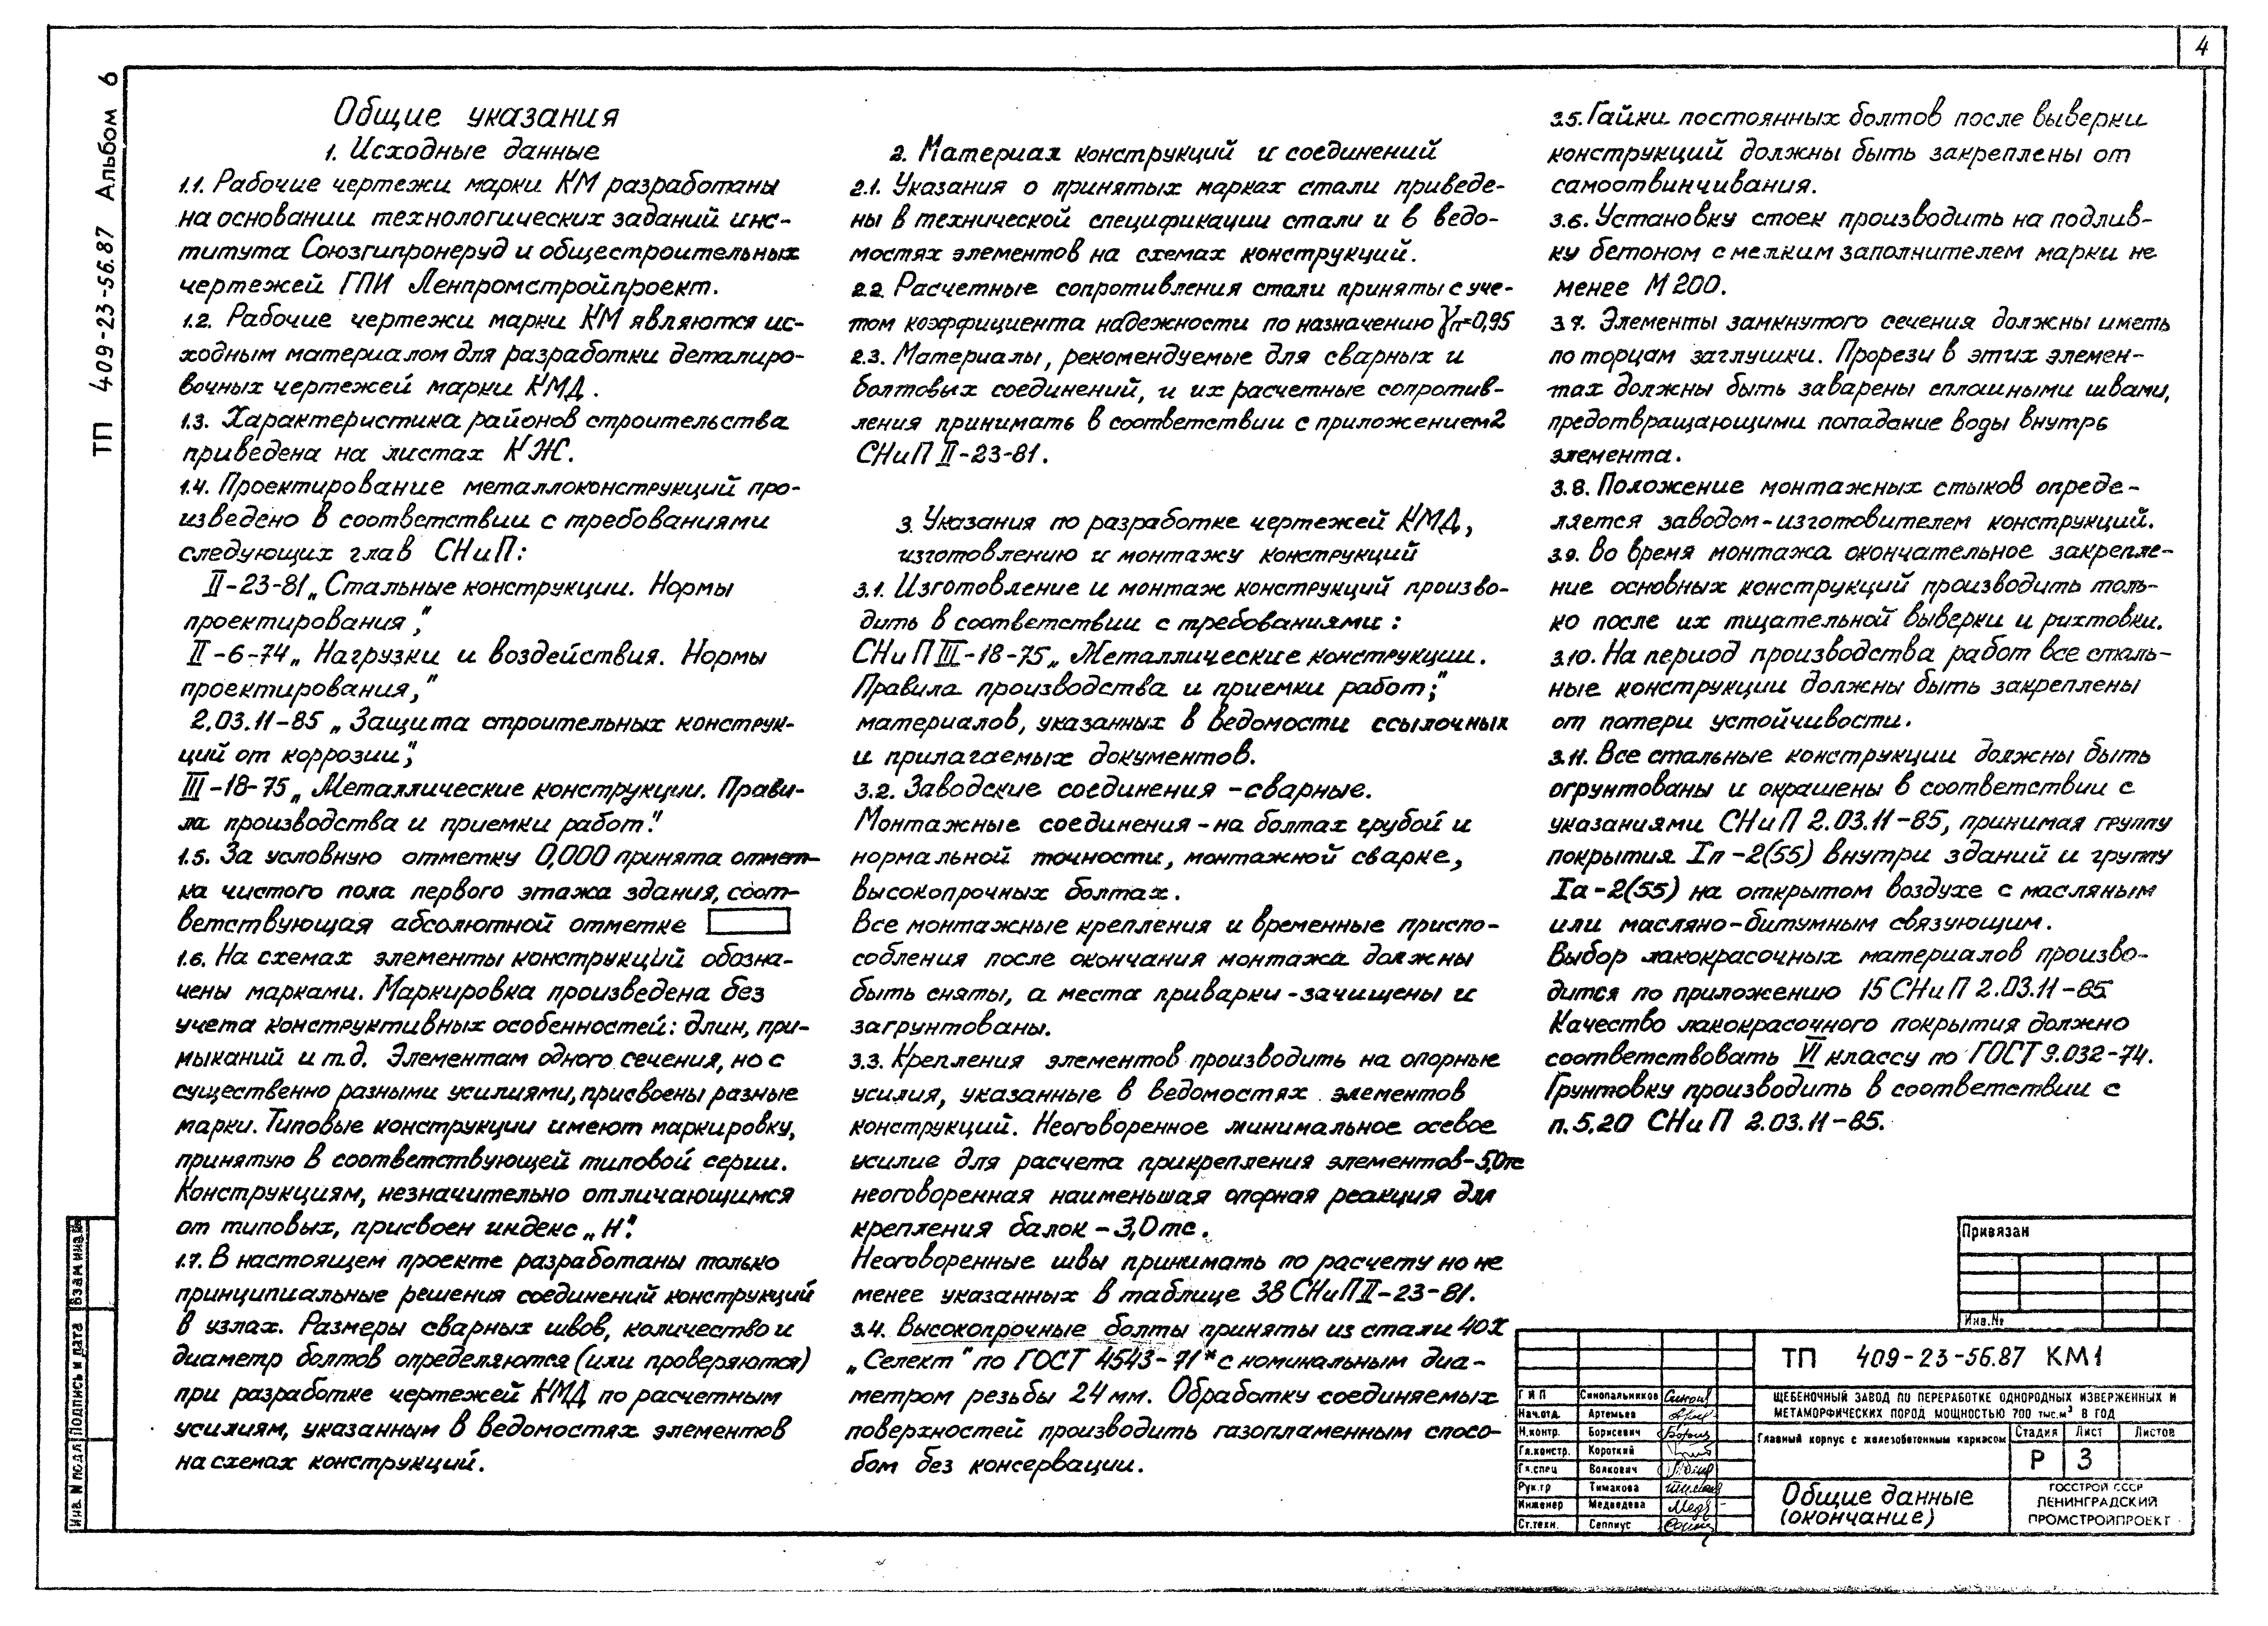 4
ТП 409-23-56.87 Альбом 6
Общие указания
1. Исходные данные
1.1. Рабочие чертежи марки КМ разработаны
на основании технологических заданий инс-
титута Союзгипронеруд и общестроительных
чертежей ГПИ Ленпромстройпроект.
1.2. Рабочие чертежи марки КМ являются ис-
ходным материалом для разработки деталиро-
вочных чертежей марки КМД.
1.3. Характеристика районов строительства
приведена на листах КЖ.
1.4. Проектирование металлоконструкций про-
изведено в соответствии с требованиями
следующих глав СНиП:
II-23-81 „Стальные конструкции. Нормы
проектирования",
II-6-74 „Нагрузки и воздействия. Нормы
проектирования,"
2.03.11-85 „Защита строительных конструк-
ций от коррозии",
III-18-75 „Металлические конструкции. Прави-
ла производства и приемки работ."
1.5. За условную отметку 0,000 принята отмет-
ка чистого пола первого этажа здания, соот-
ветствующая абсолютной отметке
1.6. На схемах элементы конструкций обозна-
чены марками. Маркировка произведена без
учета конструктивных особенностей: длин, при-
мыканий и т.д. Элементам одного сечения, но с
существенно разными усилиями, присвоены разные
марки. Типовые конструкции имеют маркировку,
принятую в соответствующей типовой серии.
Конструкциям, незначительно отличающимся
от типовых, присвоен индекс „Н".
1.7. В настоящем проекте разработаны только
принципиальные решения соединений конструкций
в узлах. Размеры сварных швов, количество и
диаметр болтов определяются (или проверяются)
при разработке чертежей КМД по расчетным
усилиям, указанным в ведомостях элементов
на схемах конструкций.
2. Материал конструкций и соединений
2.1. Указания о принятых марках стали приведе-
ны в технической спецификации стали и в ведо-
мостях элементов на схемах конструкций.
2.2. Расчетные сопротивления стали приняты с уче-
том коэффициента надежности по назначению γn=0,95
2.3. Материалы, рекомендуемые для сварных и
болтовых соединений, и их расчетные сопротив-
ления принимать в соответствии с приложением 2
СНиП II-23-81.
3. Указания по разработке чертежей КМД,
изготовлению и монтажу конструкций
3.1. Изготовление и монтаж конструкций произво-
дить в соответствии с требованиями:
СНиП III-18-75 „Металлические конструкции.
Правила производства и приемки работ;"
материалов, указанных в ведомости ссылочных
и прилагаемых документов.
3.2. Заводские соединения - сварные.
Монтажные соединения - на болтах грубой и
нормальной точности, монтажной сварке,
высокопрочных болтах.
Все монтажные крепления и временные приспо-
собления после окончания монтажа должны
быть сняты, а места приварки - зачищены и
загрунтованы.
3.3. Крепления элементов производить на опорные
усилия, указанные в ведомостях элементов
конструкций. Неоговоренное минимальное осевое
усилие для расчета прикрепления элементов-5,0тс
неоговоренная наименьшая опорная реакция для
крепления балок - 3,0тс.
Неоговоренные швы принимать по расчету но не
менее указанных в таблице 38 СНиП II-23-81.
3.4. Высокопрочные болты приняты из стали 40Х
„Селект" по ГОСТ 4543-71* с номинальным диа-
метром резьбы 24 мм. Обработку соединяемых
поверхностей производить газопламенным спосо-
бом без консервации.
3.5. Гайки постоянных болтов после выверки
конструкций должны быть закреплены от
самоотвинчивания.
3.6. Установку стоек производить на подлив-
ку бетоном с мелким заполнителем марки не
менее М200.
3.7. Элементы замкнутого сечения должны иметь
по торцам заглушки. Прорези в этих элемен-
тах должны быть заварены сплошными швами,
предотвращающими попадание воды внутрь
элемента.
3.8. Положение монтажных стыков опреде-
ляется заводом-изготовителем конструкций.
3.9. Во время монтажа окончательное закрепле-
ние основных конструкций производить толь-
ко после их тщательной выверки и рихтовки.
3.10. На период производства работ все сталь-
ные конструкции должны быть закреплены
от потери устойчивости.
3.11. Все стальные конструкции должны быть
огрунтованы и окрашены в соответствии с
указаниями СНиП 2.03.11-85, принимая группу
покрытия Iп-2(55) внутри зданий и группу
Iа-2(55) на открытом воздухе с масляным
или масляно-битумным связующим.
Выбор лакокрасочных материалов произво-
дится по приложению 15 СНиП 2.03.11-85
Качество лакокрасочного покрытия должно
соответствовать VI классу по ГОСТ 9.032-74.
Грунтовку производить в соответствии с
п.5.20 СНиП 2.03.11-85.
Привязан
Инв.№
ТП 409-23-56.87 КМ1
ЩЕБЕНОЧНЫЙ ЗАВОД ПО ПЕРЕРАБОТКЕ ОДНОРОДНЫХ ИЗВЕРЖЕННЫХ И
МЕТАМОРФИЧЕСКИХ ПОРОД МОЩНОСТЬЮ 700 тыс.м³ В ГОД
Главный корпус с железобетонным каркасом
Стадия Лист Листов
Р 3
Общие данные
(окончание)
ГОССТРОЙ СССР
ЛЕНИНГРАДСКИЙ
ПРОМСТРОЙПРОЕКТ
ГИП Синопальников
Нач.отд. Артемьев
Н.контр. Борисевич
Гл.констр. Короткий
Гл.спец Волкович
Рук.гр Тимакова
Инженер Медведева
Ст.техн. Сеппиус
Взам инв.№
Подпись и дата
Инв. N подл